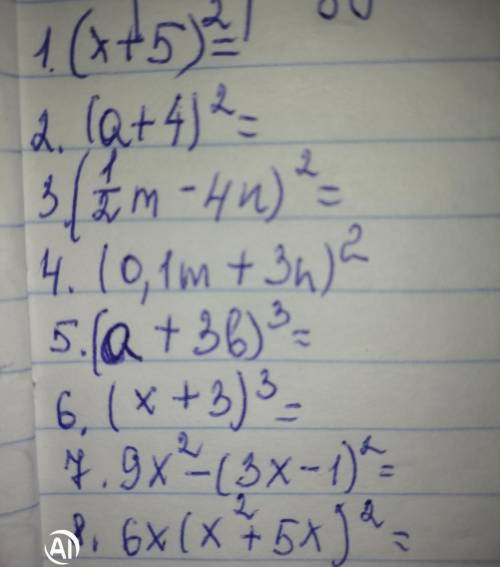 1. (x+5)²=
2. (a+4)²=
3. (1/2 m - 4n)²=
4. (0,1m + 3n)²
5. (a + 3b)³=
6. (x + 3)³=
7. 9x² - (3x - 1)²=
8. 6x(x² + 5x)²=
AI